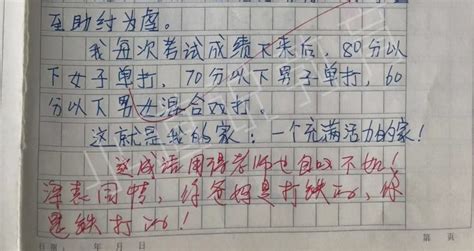 至助纣为虐。
我每次考试成绩下来后，80分以
下女子单打，70分以下男子单打，60
分以下男女混合双打。
这就是我的家：一个充满活力的家！
这成语用得老师也自叹不如！
深表同情，你爸妈是打铁的，你
是铁打的！
第 页
年 月 日